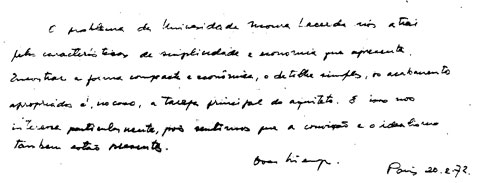 O problema da Universidade Moura Lacerda nos atrai
pelas características de simplicidade e economia que apresenta.
Encontrar a forma compacta e econômica, o detalhe simples, os acabamentos
apropriados é, no caso, a tarefa principal do arquiteto. E isso nos
interessa particularmente, pois sentimos que a convicção e o idealismo
também estão presentes.
Oscar Niemeyer.
Paris 20.2.72.